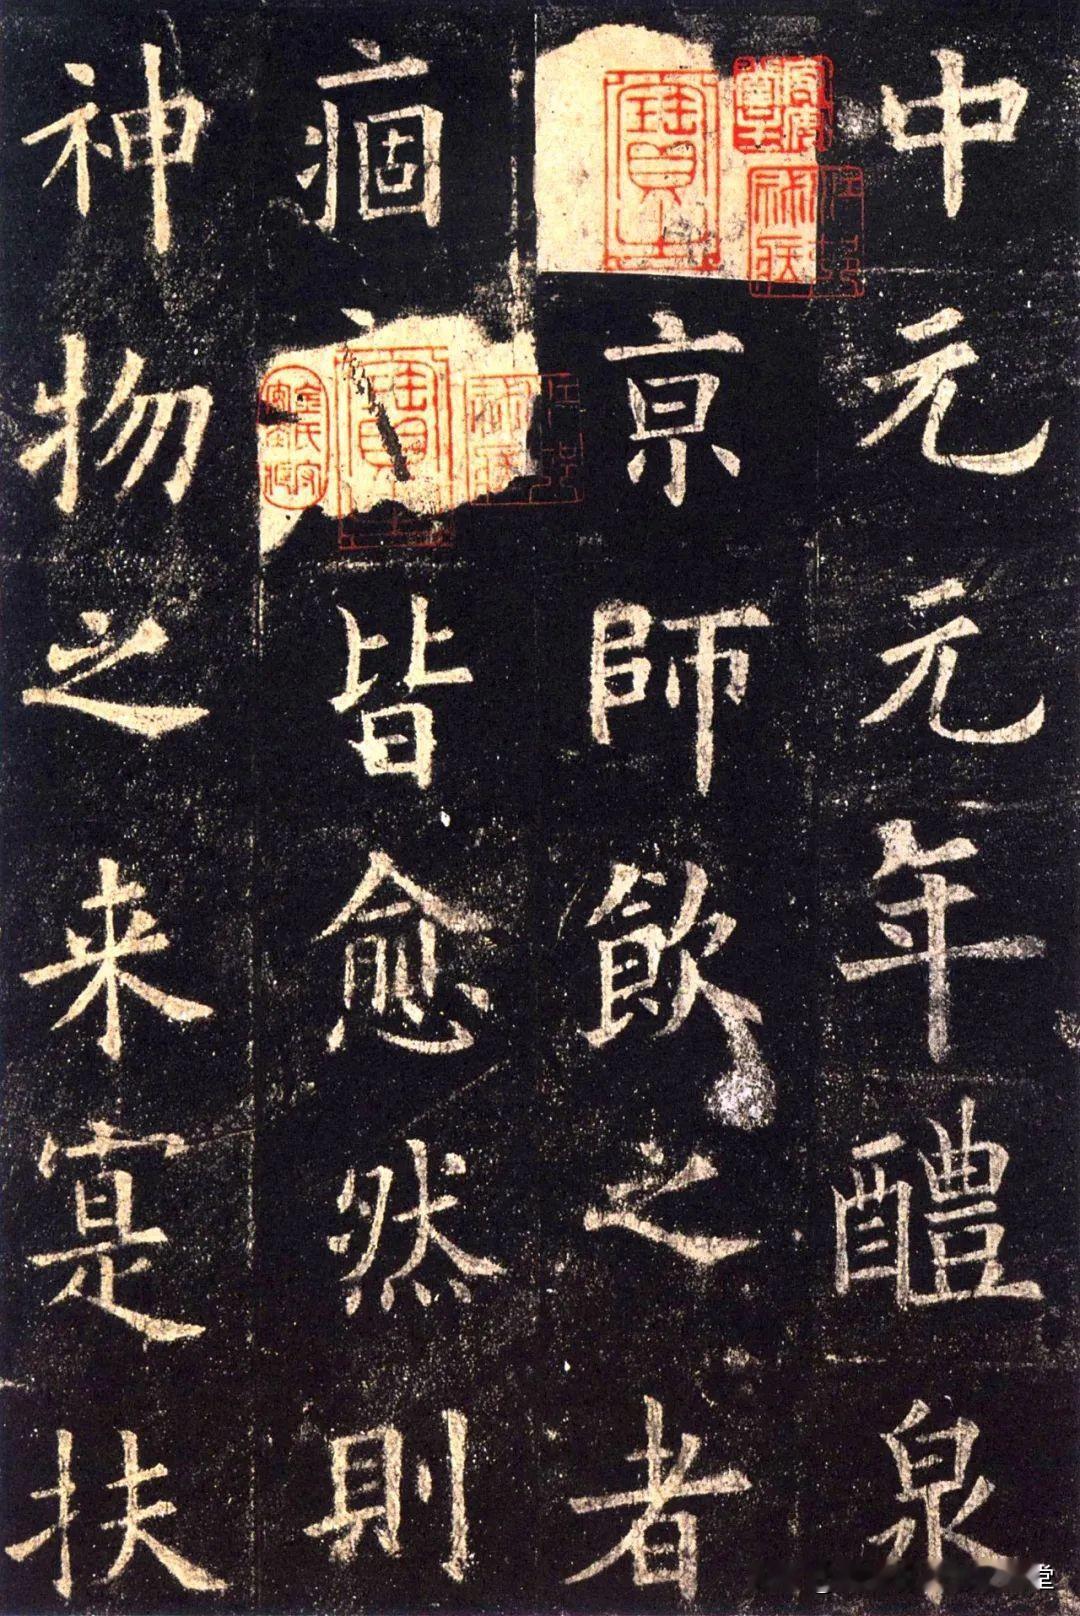 中元元年醴泉
京師飲之者
痼皆愈然則
神物之来寔扶
寶
寶
堂